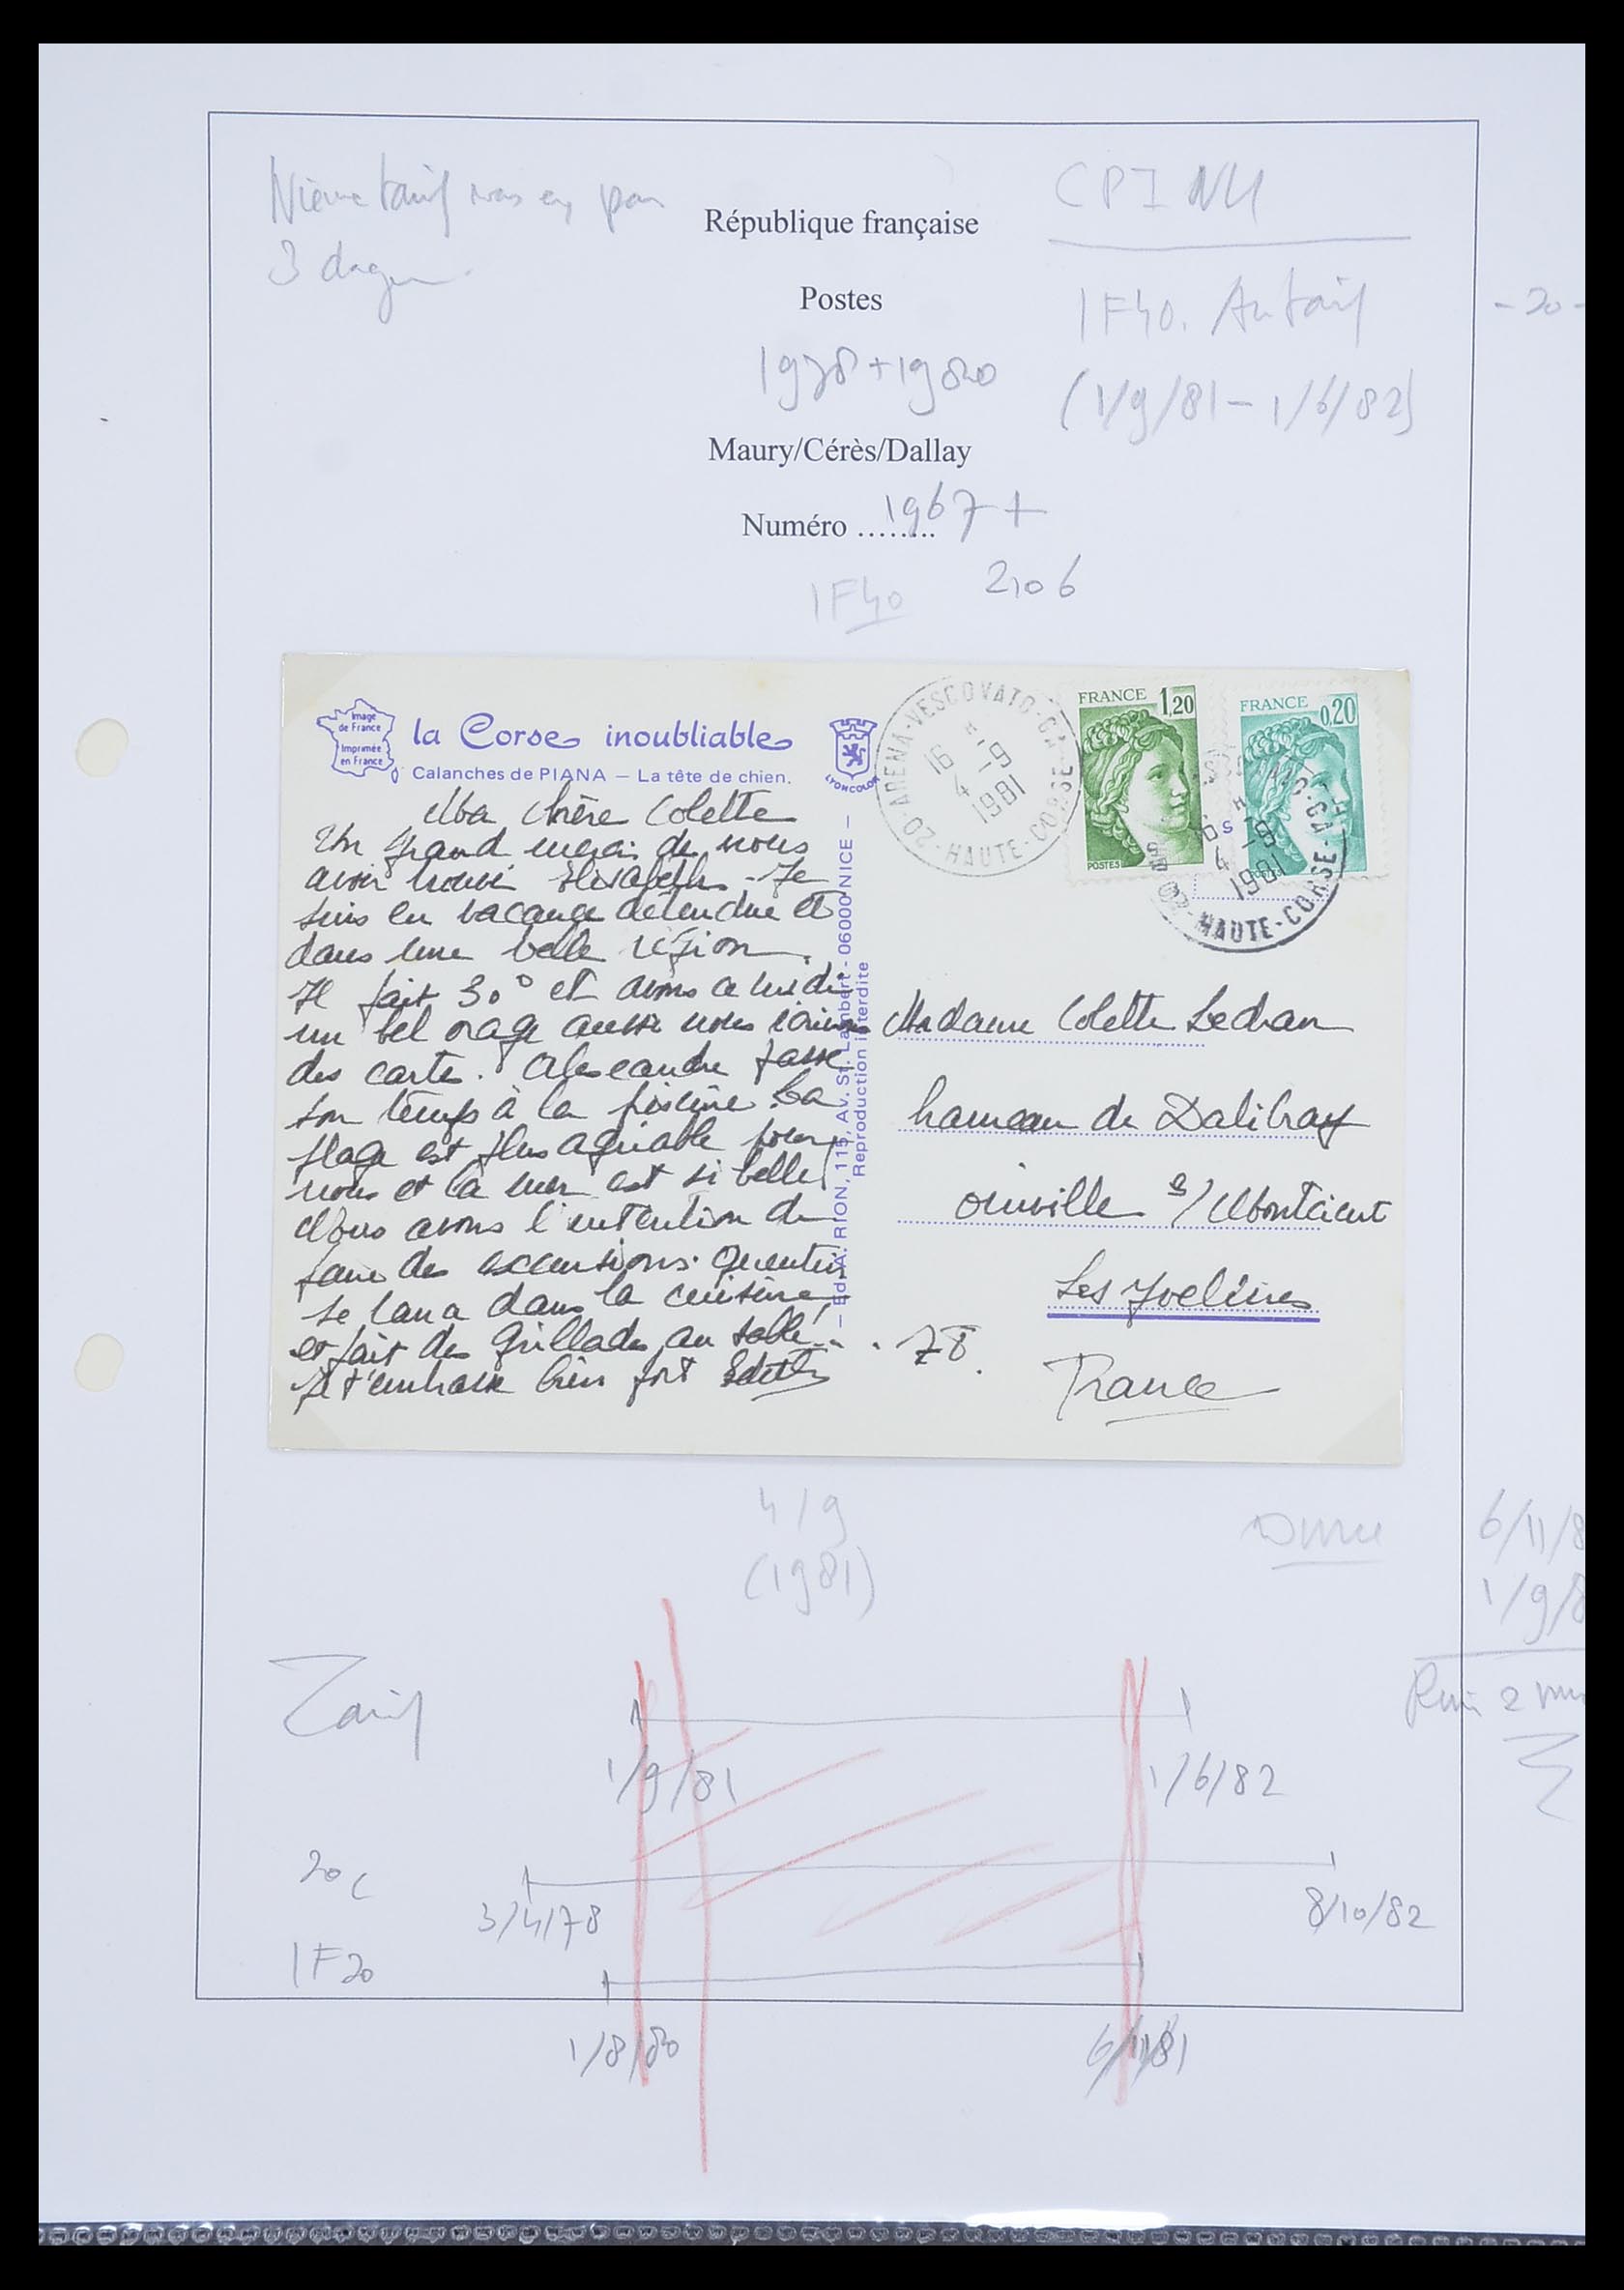 3 dagen
CPI NU
République française
1F40.
- 20 -
Postes
1978 + 1980
(1/9/81 - 1/6/82)
Maury/Cérès/Dallay
Numéro ........ 1967 +
2106
1F40
Image
de France
Imprimée
en France
la Corse inoubliable
Calanches de PIANA – La tête de chien.
LYONCOLOR
20-ARENA-VESCOVATO-GA
HAUTE-CORSE
16 H
4 -9
1981
FRANCE 1,20
POSTES
FRANCE 0,20
16 H
4 -9
1981
HAUTE-CORSE
Ma chère Colette
Un grand merci de nous
avoir Elisabeth. Je
suis en vacance détendue et
dans une belle région.
Il fait 30° et avons ce midi
un bel orage aussi nous écrivons
des carte. Alexandre passe
son temps à la piscine. La
plage est plus agréable pour
nous et la mer est si belle
Nous avons l'intention de
faire des excursions. Quentin
se lance dans la cuisine,
et fait des grillades au
Je t'embrasse bien fort Edith
– Ed. A. RION, 115, Av. St. Lambert - 06000 NICE –
Reproduction interdite
Madame Colette Ledran
hameau de Dalibray
oinville s/ Montcient
Les Yvelines
78.
France
4/9
(1981)
6/11/8
1/9/8
Tarif
1/9/81
1/6/82
20c
3/4/78
8/10/82
1F20
1/8/80
6/11/81